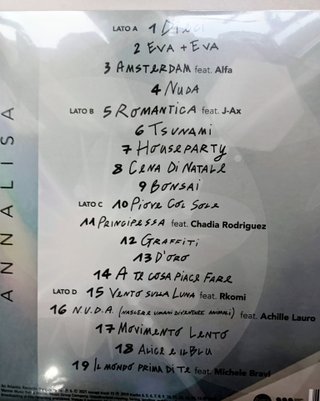 ANNALISA
LATO A 1 Dieci
2 EVA + EVA
3 AMSTERDAM feat. Alfa
4 NUDA
LATO B 5 ROMANTICA feat. J-Ax
6 TSUNAMI
7 HOUSEPARTY
8 CENA DI NATALE
9 BONSAI
LATO C 10 PIOVE COL SOLE
11 PRINCIPESSA feat. Chadia Rodriguez
12 GRAFFITI
13 D'ORO
14 A TE COSA PIACE FARE
LATO D 15 VENTO SULLA LUNA feat. Rkomi
16 N.U.D.A. (NASCERE UMANI DIVENTARE ANIMALI) feat. Achille Lauro
17 MOVIMENTO LENTO
18 ALICE E IL BLU
19 IL MONDO PRIMA DI TE feat. Michele Bravi